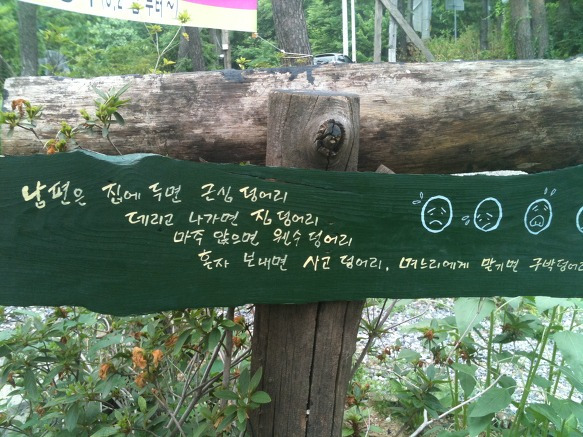 남편은 집에 두면 근심 덩어리
데리고 나가면 짐 덩어리
마주 앉으면 웬수 덩어리
혼자 보내면 사고 덩어리, 며느리에게 맡기면 구박덩어리